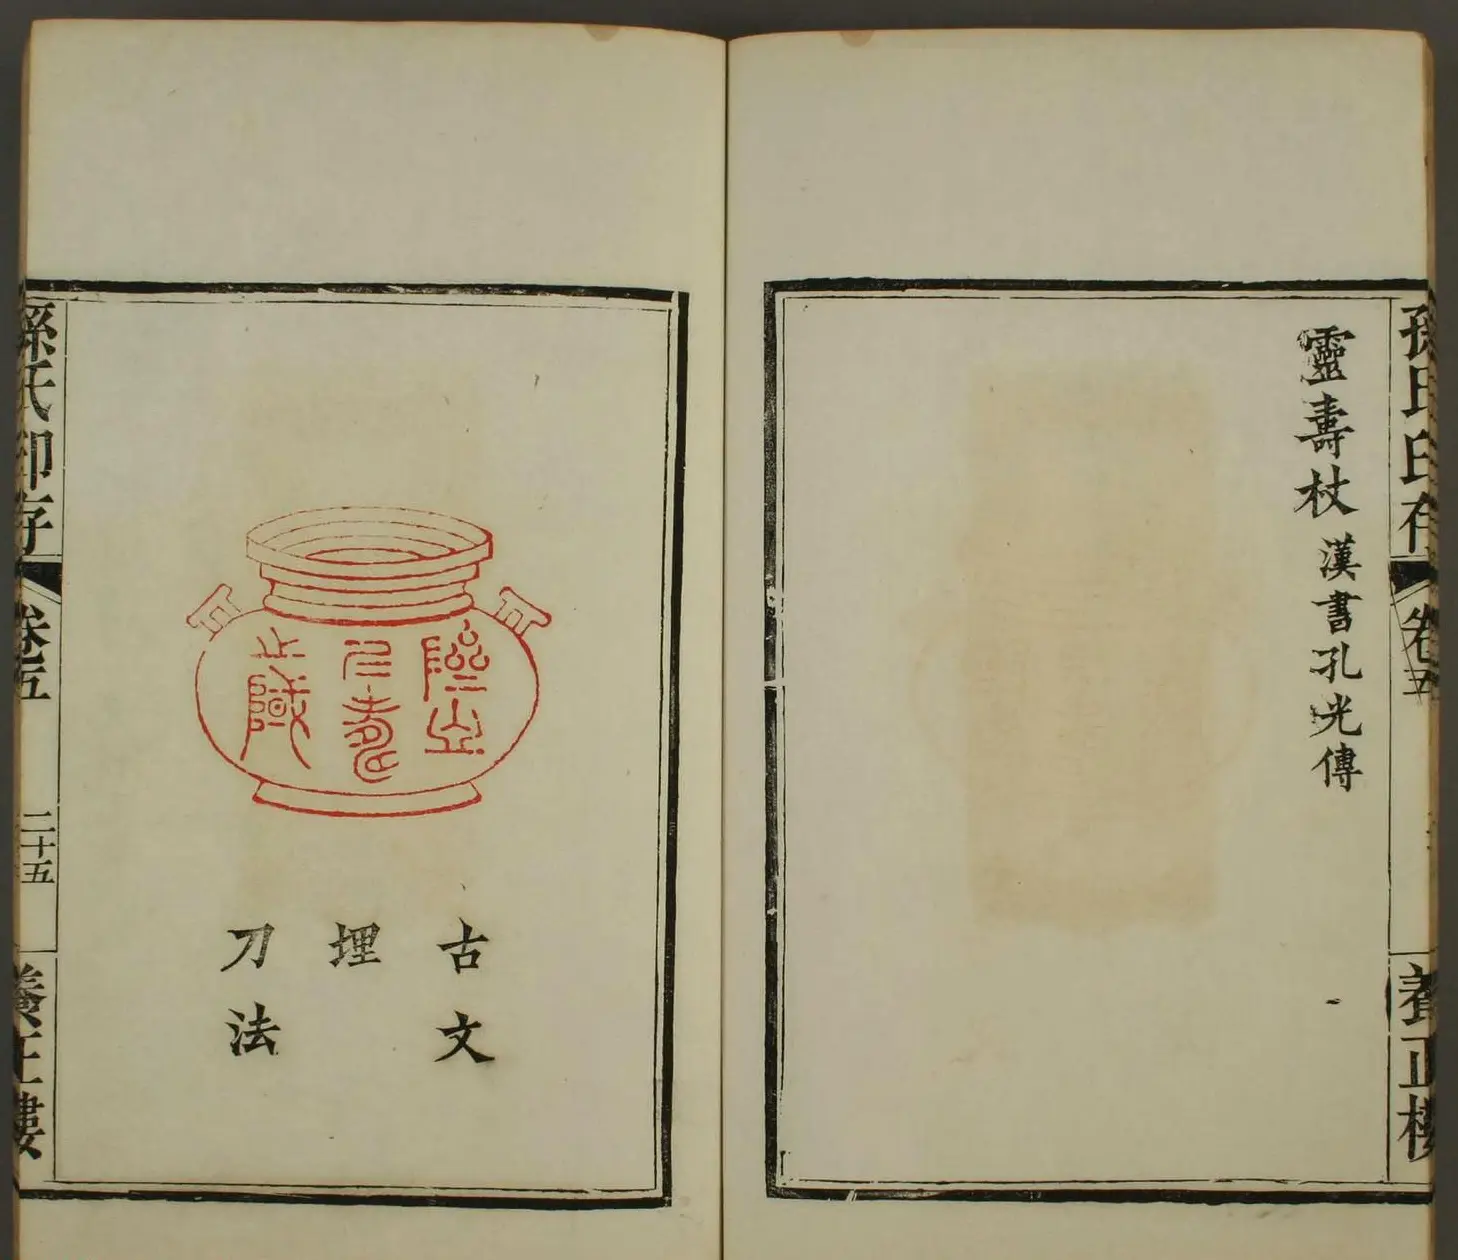 孫氏印存
卷五
養正樓
靈壽杖 漢書孔光傳
仁壽
之域
古文
埋
刀法
孫氏印存
卷五
二十五
養正樓